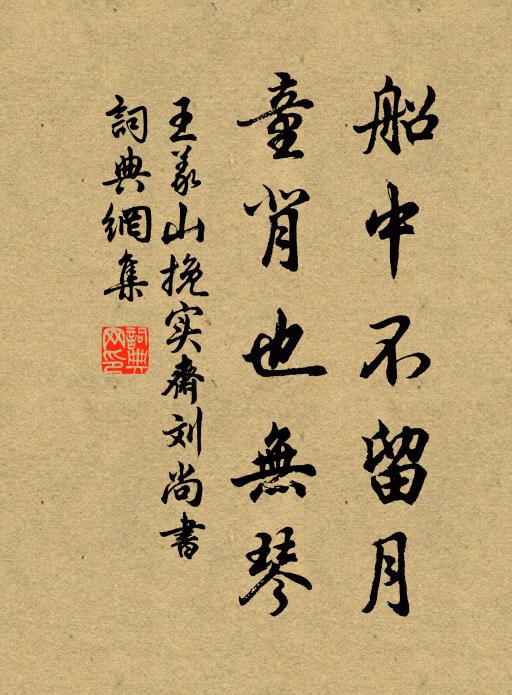 船中不留月
童背也無琴
王义山挽实齋刘尚書
詞典網集
詞典网印